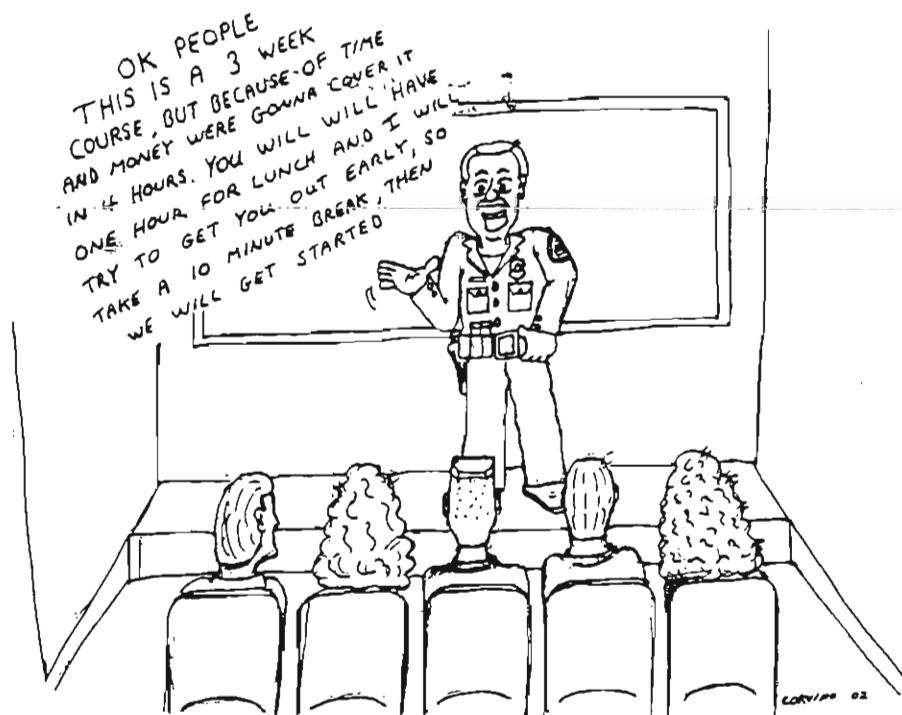 OK PEOPLE
THIS IS A 3 WEEK
COURSE, BUT BECAUSE OF TIME
AND MONEY WERE GONNA COVER IT
IN 4 HOURS. YOU WILL WILL HAVE
ONE HOUR FOR LUNCH AND I WILL
TRY TO GET YOU OUT EARLY, SO
TAKE A 10 MINUTE BREAK, THEN
WE WILL GET STARTED
CORVINO 02